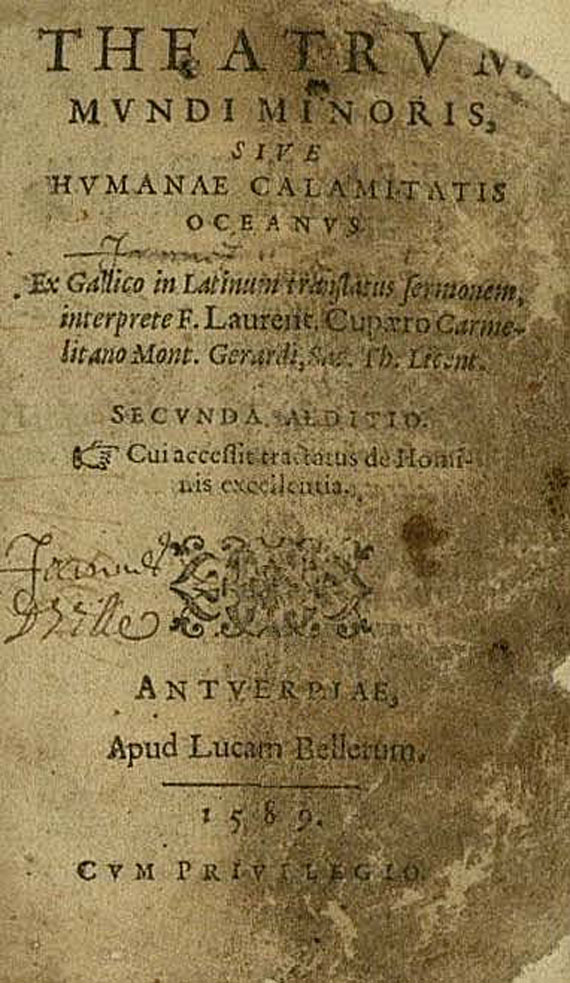 THEATRVM
MVNDI MINORIS,
SIVE
HVMANAE CALAMITATIS
OCEANVS
Ex Gallico in Latinum tranſlatus ſermonem,
interprete F. Laurent. Cupæro Carme-
litano Mont. Gerardi, Sac. Th. Licent.
SECVNDA ÆDITIO.
☞ Cui acceſſit tractatus de Homi-
nis excellentia.
ANTVERPIAE,
Apud Lucam Bellerum.
1589.
CVM PRIVILEGIO.